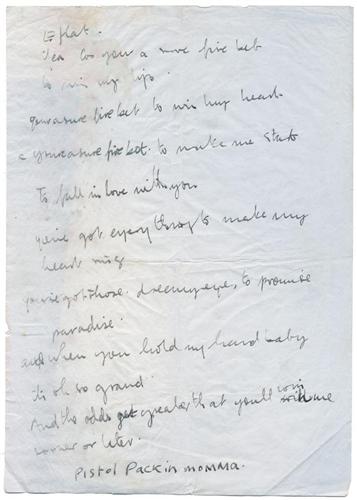 E flat.
Yea you a sure fire bet
to win my lips.
youre a sure fire bet to win my heart
a youre a sure fire bet. to make me start
To fall in love with you
you've got everything to make my
heart ring
you've got those. dreamy eyes, to promise
paradise.
and when you hold my hand baby
its oh so grand
And the odds get greater that you'll win me
sooner or later.
PISTOL PACKIN MOMMA.